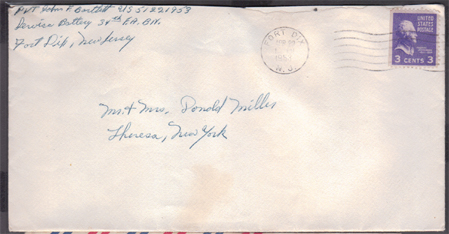 Pvt John F Bartlett US 51221953
Service Battery 34th FA. BN.
Fort Dix, New Jersey
FORT DIX
N. J.
UNITED STATES POSTAGE
3 CENTS 3
Mr + Mrs. Donald Miller
Theresa, New York